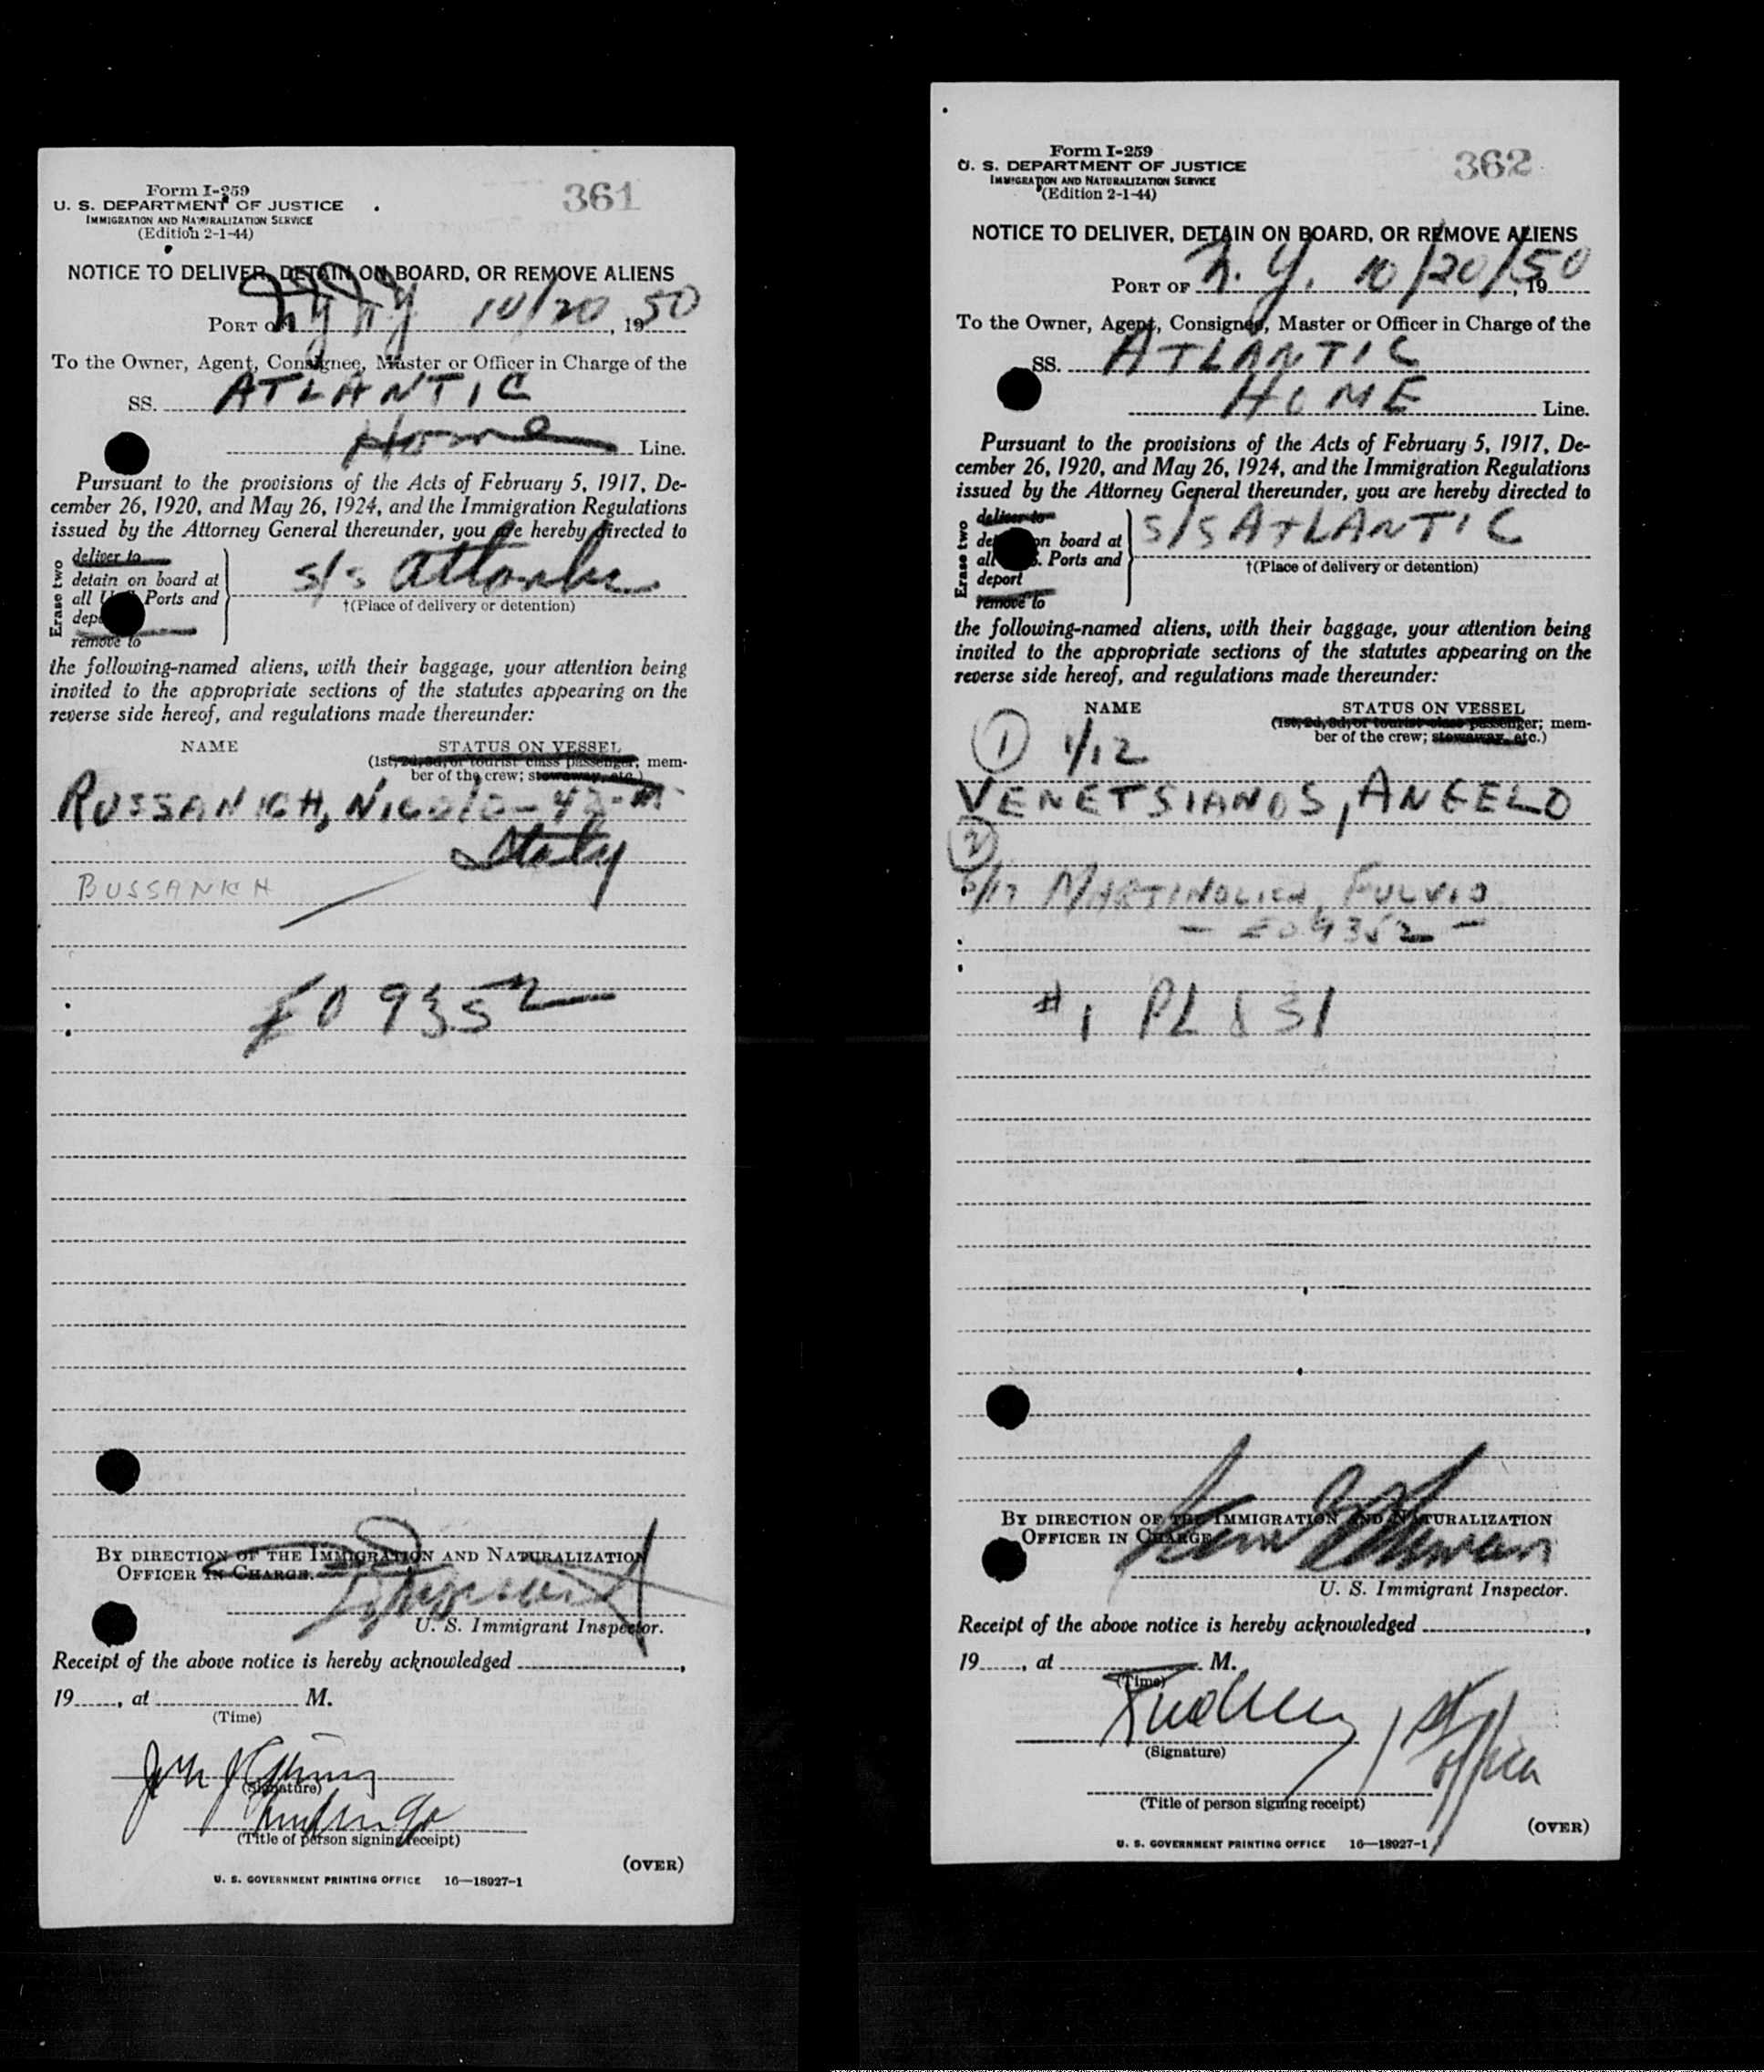 361
Form I-259
U. S. DEPARTMENT OF JUSTICE
IMMIGRATION AND NATURALIZATION SERVICE
(Edition 2-1-44)
NOTICE TO DELIVER, DETAIN ON BOARD, OR REMOVE ALIENS
PORT OF NY NY 10/20, 1950
To the Owner, Agent, Consignee, Master or Officer in Charge of the
SS. ATLANTIC
Home Line.
Pursuant to the provisions of the Acts of February 5, 1917, De-
cember 26, 1920, and May 26, 1924, and the Immigration Regulations
issued by the Attorney General thereunder, you are hereby directed to
Erase two
deliver to
detain on board at
all U. S. Ports and
deport
remove to
s/s Atlantic
†(Place of delivery or detention)
the following-named aliens, with their baggage, your attention being
invited to the appropriate sections of the statutes appearing on the
reverse side hereof, and regulations made thereunder:
NAME STATUS ON VESSEL
(1st, 2d, 3d, or tourist class passenger; mem-
ber of the crew; stowaway, etc.)
RUSSANICH, NICOLO - 42 - m
Italy
BUSSANICH
E09352
BY DIRECTION OF THE IMMIGRATION AND NATURALIZATION
OFFICER IN CHARGE.
U. S. Immigrant Inspector.
Receipt of the above notice is hereby acknowledged
19, at M.
(Time)
(Signature)
(Title of person signing receipt)
(OVER)
U. S. GOVERNMENT PRINTING OFFICE 16—18927-1
362
Form I-259
U. S. DEPARTMENT OF JUSTICE
IMMIGRATION AND NATURALIZATION SERVICE
(Edition 2-1-44)
NOTICE TO DELIVER, DETAIN ON BOARD, OR REMOVE ALIENS
PORT OF N. Y. 10/20/50, 19
To the Owner, Agent, Consignee, Master or Officer in Charge of the
SS. ATLANTIC
HOME Line.
Pursuant to the provisions of the Acts of February 5, 1917, De-
cember 26, 1920, and May 26, 1924, and the Immigration Regulations
issued by the Attorney General thereunder, you are hereby directed to
Erase two
deliver to
detain on board at
all U. S. Ports and
deport
remove to
S/S ATLANTIC
†(Place of delivery or detention)
the following-named aliens, with their baggage, your attention being
invited to the appropriate sections of the statutes appearing on the
reverse side hereof, and regulations made thereunder:
NAME STATUS ON VESSEL
(1st, 2d, 3d, or tourist class passenger; mem-
ber of the crew; stowaway, etc.)
① 1/12
VENETSIANOS, ANGELO
②
MARTINOLICH, FULVIO
- E09352 -
#1 PL 831
BY DIRECTION OF THE IMMIGRATION AND NATURALIZATION
OFFICER IN CHARGE
U. S. Immigrant Inspector.
Receipt of the above notice is hereby acknowledged
19, at M.
(Time)
(Signature)
1st officer
(Title of person signing receipt)
(OVER)
U. S. GOVERNMENT PRINTING OFFICE 16—18927-1